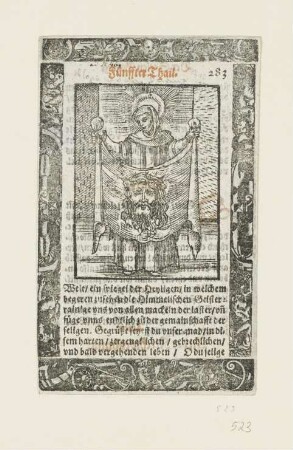 Fünffter Thail. 283
Welt / ein spiegel der Heyligen / in welchem
begeren zusehen die Himmelischen Geister
rainige vns von allen mackeln der laster / vñ
füge vnns entlich zů der gemainschafft der
seligen. Gegrüßt seyest du vnser          in di
sem harten / zergengklichen / gebrechlichen /
vnd bald vergehenden leben / O du selige
523